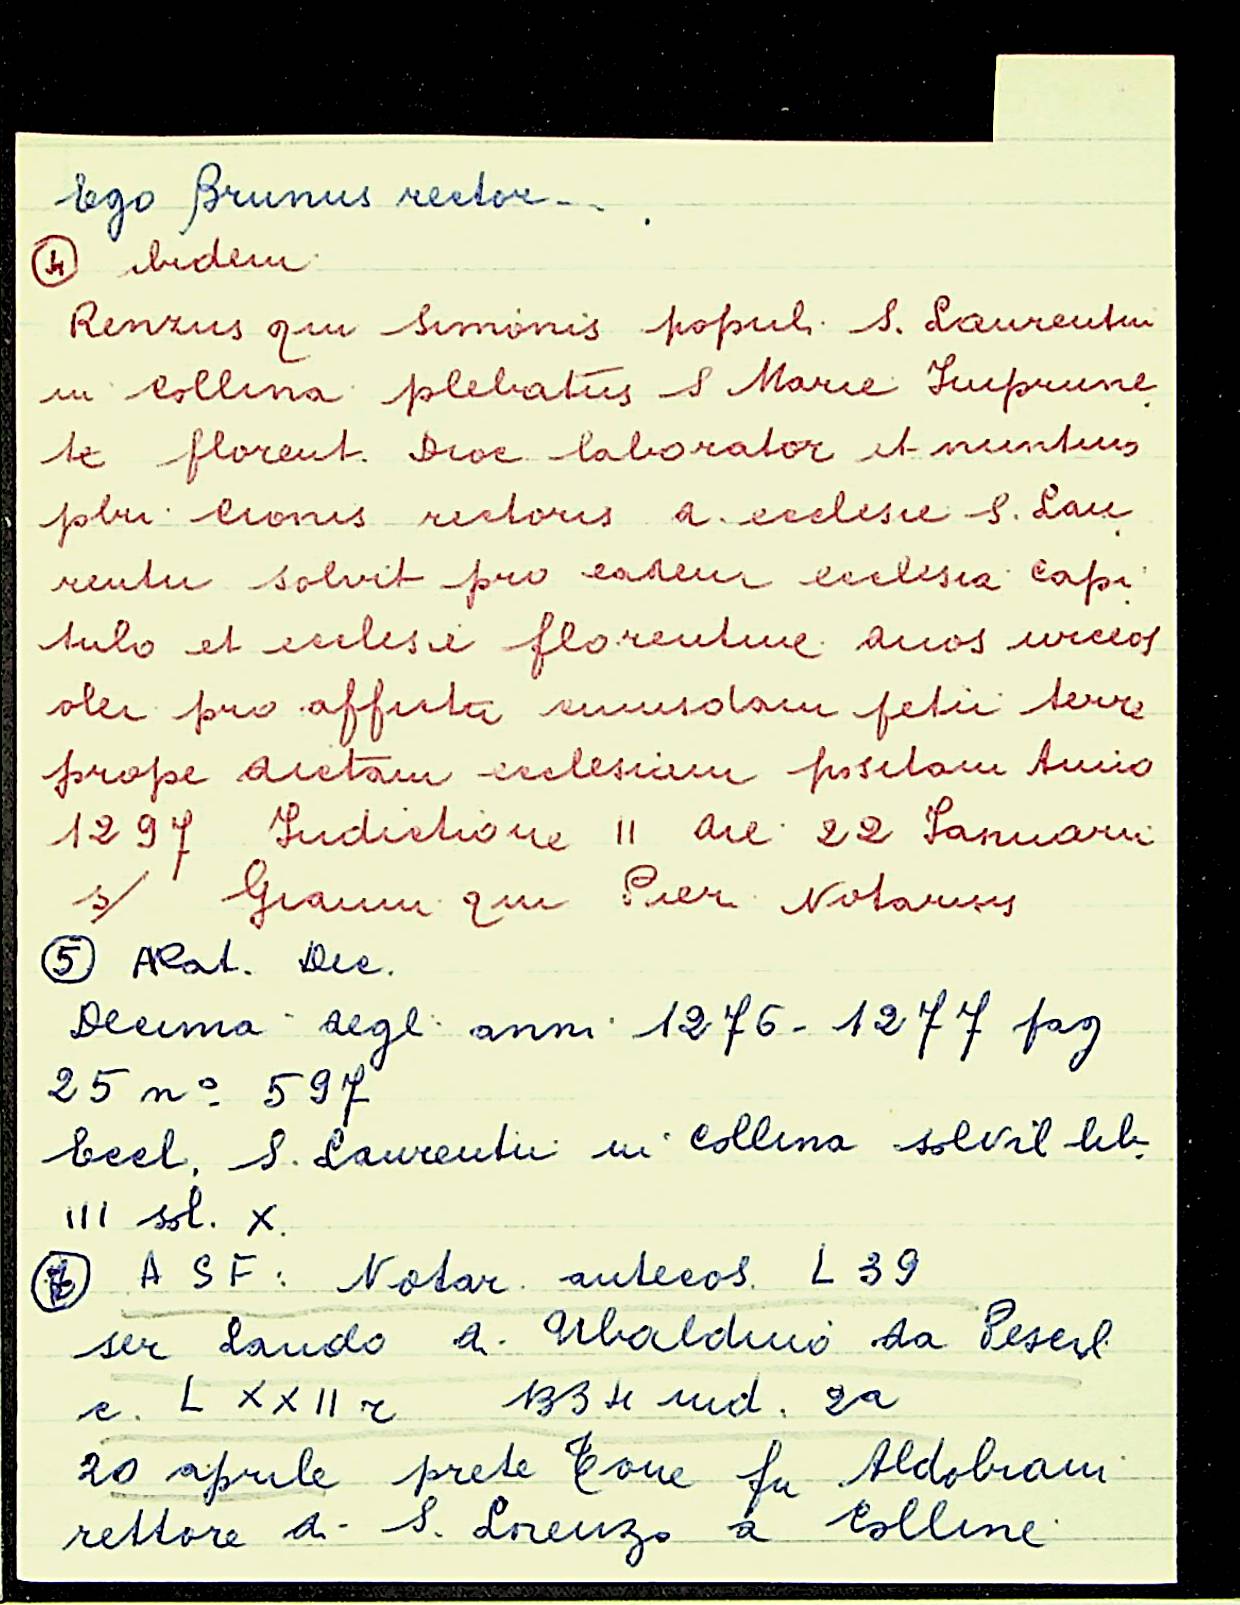 Ego Brunus rector - .
④ ibidem
Renzus qm Simonis popul. S. Laurentii
in Collina plebatus S Marie Imprune
te florent. Dioc laborator et nuntius
pbri Cionis rectoris d. ecclesie S. Lau
rentii solvit pro eadem ecclesia capi
tulo et eccles e florentine duos urceos
olei pro affictu cuiusdam petii terre
prope dictam ecclesiam positam Anno
1297 Indictione 11 die 22 Ianuarii
s/ Gianni qm Pier. Notarius
⑤ Rat. Dec.
Decima degl anni 1276 - 1277 pag
25 nº 597
Eccl. S. Laurentii in Collina solvit lib.
III sol. X.
ASF: Notar. antecos. L 39
ser Lando di Ubaldino da Pescil
c. LXXII r 1334 ind. 2a
20 aprile prete Cione fu Aldobrani
rettore di S. Lorenzo a Colline